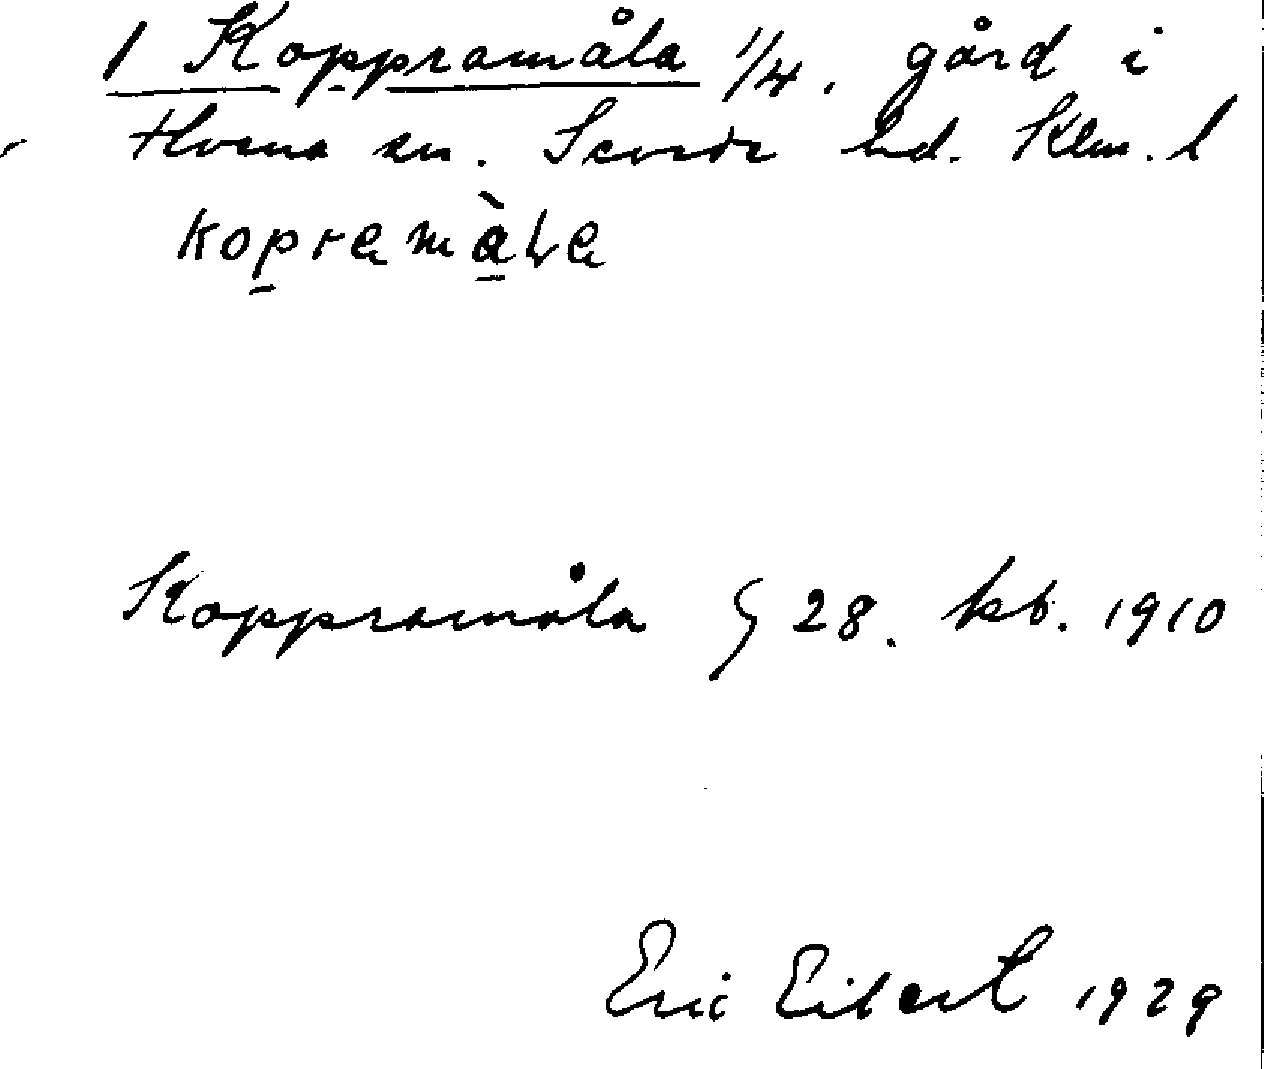 1 Koppramåla 1/4. gård i
Hvena sn. Sevede hd. Klm. l
kopramåla
Koppramåla § 28. kb. 1910
Eric Eibert 1929